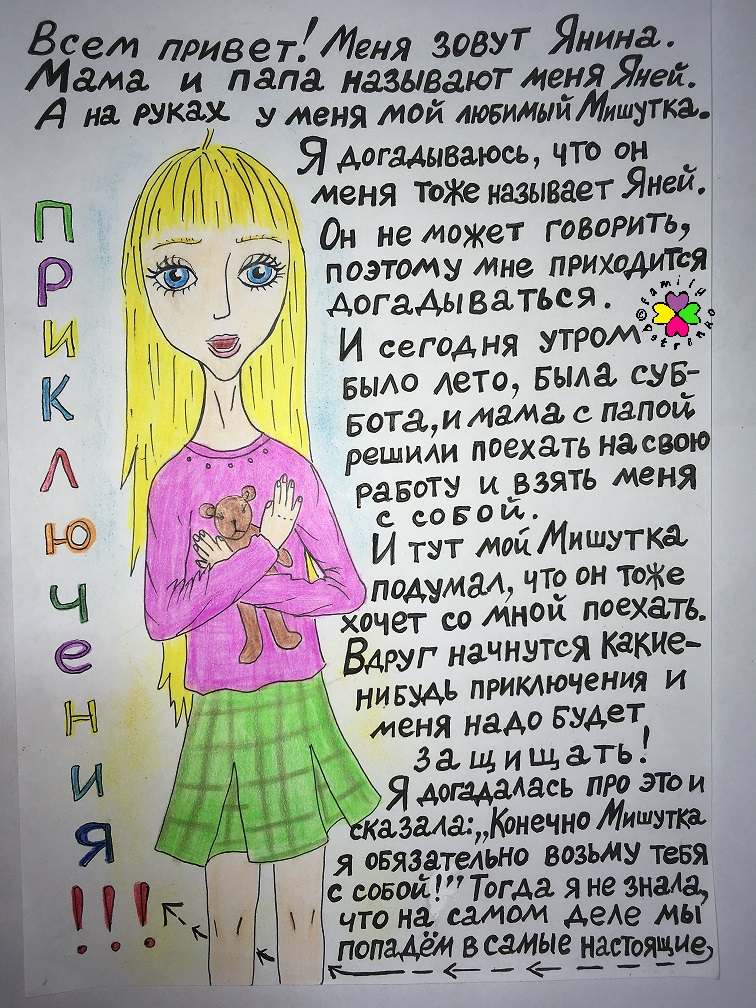 Всем привет! Меня зовут Янина.
Мама и папа называют меня Яней.
А на руках у меня мой любимый Мишутка.
Я догадываюсь, что он
меня тоже называет Яней.
Он не может говорить,
поэтому мне приходится
догадываться.
И сегодня утром
было лето, была суб-
бота, и мама с папой
решили поехать на свою
работу и взять меня
с собой.
И тут мой Мишутка
подумал, что он тоже
хочет со мной поехать.
Вдруг начнутся какие-
нибудь приключения и
меня надо будет
защищать!
Я догадалась про это и
сказала: „Конечно Мишутка
я обязательно возьму тебя
с собой!” Тогда я не знала,
что на самом деле мы
попадём в самые настоящие,
ПРИКЛЮЧЕНИЯ!!!
©family petrenko